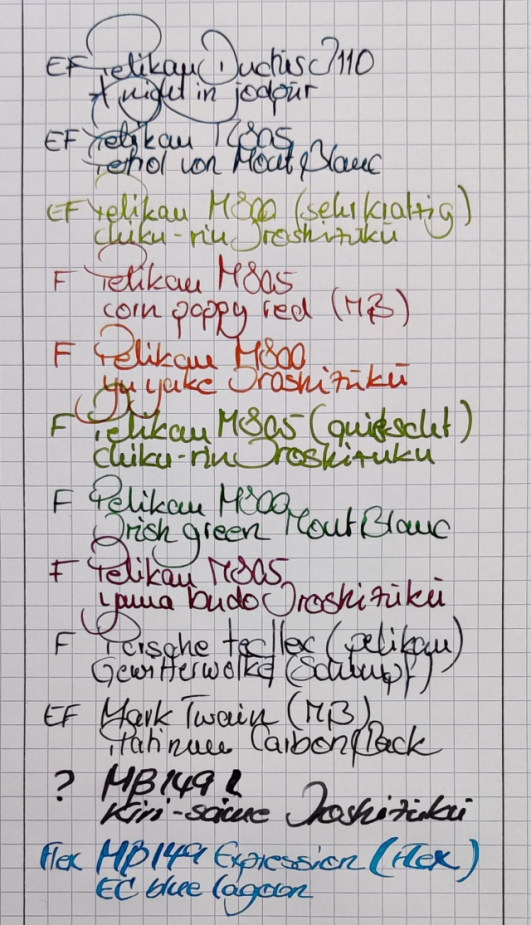 EF Pelikan Ductus 3110
A night in jodpur
EF Pelikan M805
Petrol von Mont Blanc
EF Pelikan M800 (sehr kratzig)
chiku-rin Iroshizuku
F Pelikan M805
corn poppy red (MB)
F Pelikan M800
yu yake Iroshizuku
F Pelikan M805 (quietscht)
chiku-rin Iroshizuku
F Pelikan M800
Irish green Mont Blanc
F Pelikan M805
yama budo Iroshizuku
F Porsche tecflex (pelikan)
Gewitterwolke
EF Mark Twain (MB)
Platinum Carbon Black
? MB 149
Kiri-same Iroshizuku
flex MB 149 Expression (flex)
EC blue lagoon